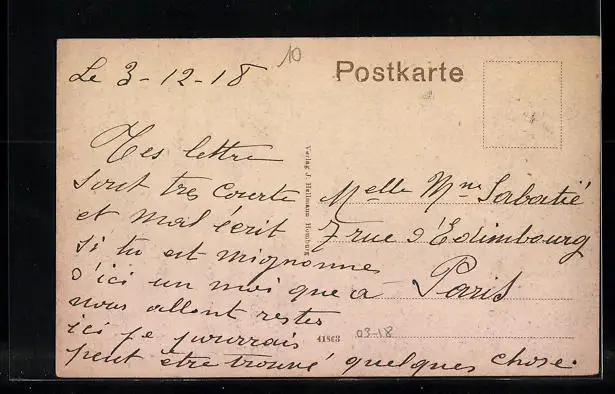 Le 3-12-18
10
Postkarte
Tes lettre
sont tres courte
et mal écrit
si tu est mignonne
d'ici un moi que a
nous allont restes
ici je pourrais
peut etre trouvé quelques chose.
Verlag J. Heilmann Homburg
Melle Sabatié
7 rue d'Edimbourg
Paris
41863
03-18